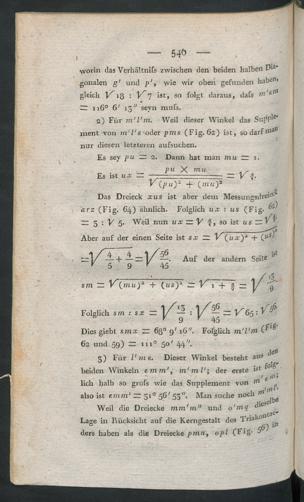 — 546 —
worin das Verhältniſs zwischen den beiden halben Dia-
gonalen g' und p', wie wir oben gefunden haben,
gleich √ 18 : √ 7 ist, so folgt daraus, daſs m'am
= 116° 6' 13" seyn muſs.
2) Für m'l'm. Weil dieser Winkel das Supple-
ment von m'l's oder pms (Fig. 62) ist, so darf man
nur diesen letzteren aufsuchen.
Es sey pu = 2. Dann hat man mu = 1.
Es ist ux = pu × mu / √ (pu)² + (mu)² = √ ⅘.
Das Dreieck xus ist aber dem Messungsdreieck
arz (Fig. 64) ähnlich. Folglich ux : us (Fig. 62)
= 3 : √ 5. Weil nun ux = √ ⅘, so ist us = √ 4/9.
Aber auf der einen Seite ist sx = √ (ux)² + (us)²
= √ 4/5 + 4/9 = √ 56/45. Auf der andern Seite ist
sm = √ (mu)² + (us)² = √ 1 + 4/9 = √ 13/9.
Folglich sm : sx = √ 13/9 : √ 56/45 = √ 65 : √ 56.
Dies giebt smx = 68° 9' 16". Folglich m'l'm (Fig.
62 und 59) = 111° 50' 44".
3) Für l'me. Dieser Winkel besteht aus den
beiden Winkeln emm', m'ml'; der erste ist folg-
lich halb so groſs wie das Supplement von m'em;
also ist emm' = 31° 56' 53". Man suche noch m'ml'.
Weil die Dreiecke mm'm" und o'mq dieselbe
Lage in Rücksicht auf die Kerngestalt des Triakontae-
ders haben als die Dreiecke pmn, opt (Fig. 56) in